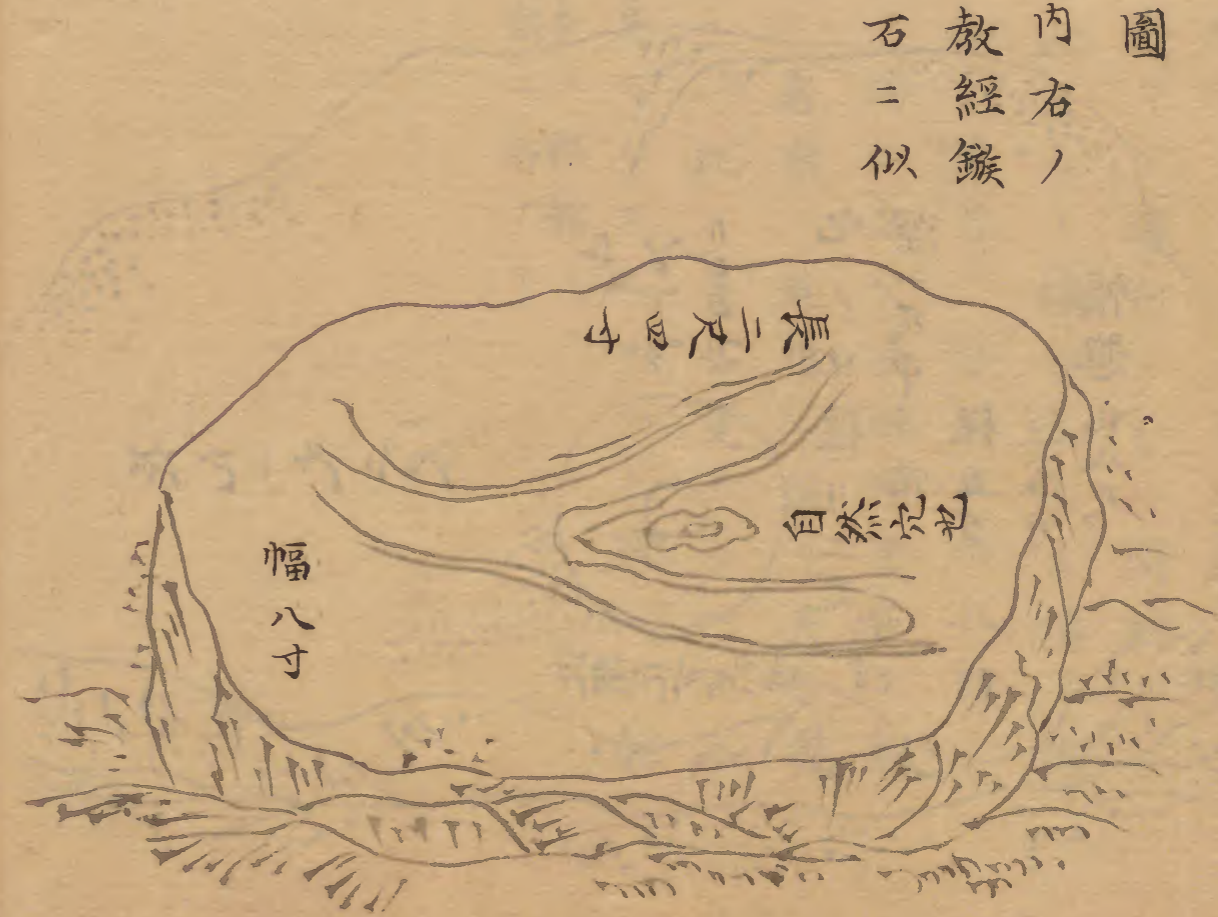 圖
内右ノ
教經鏃
石ニ似
長二尺四寸
自然穴也
幅八寸